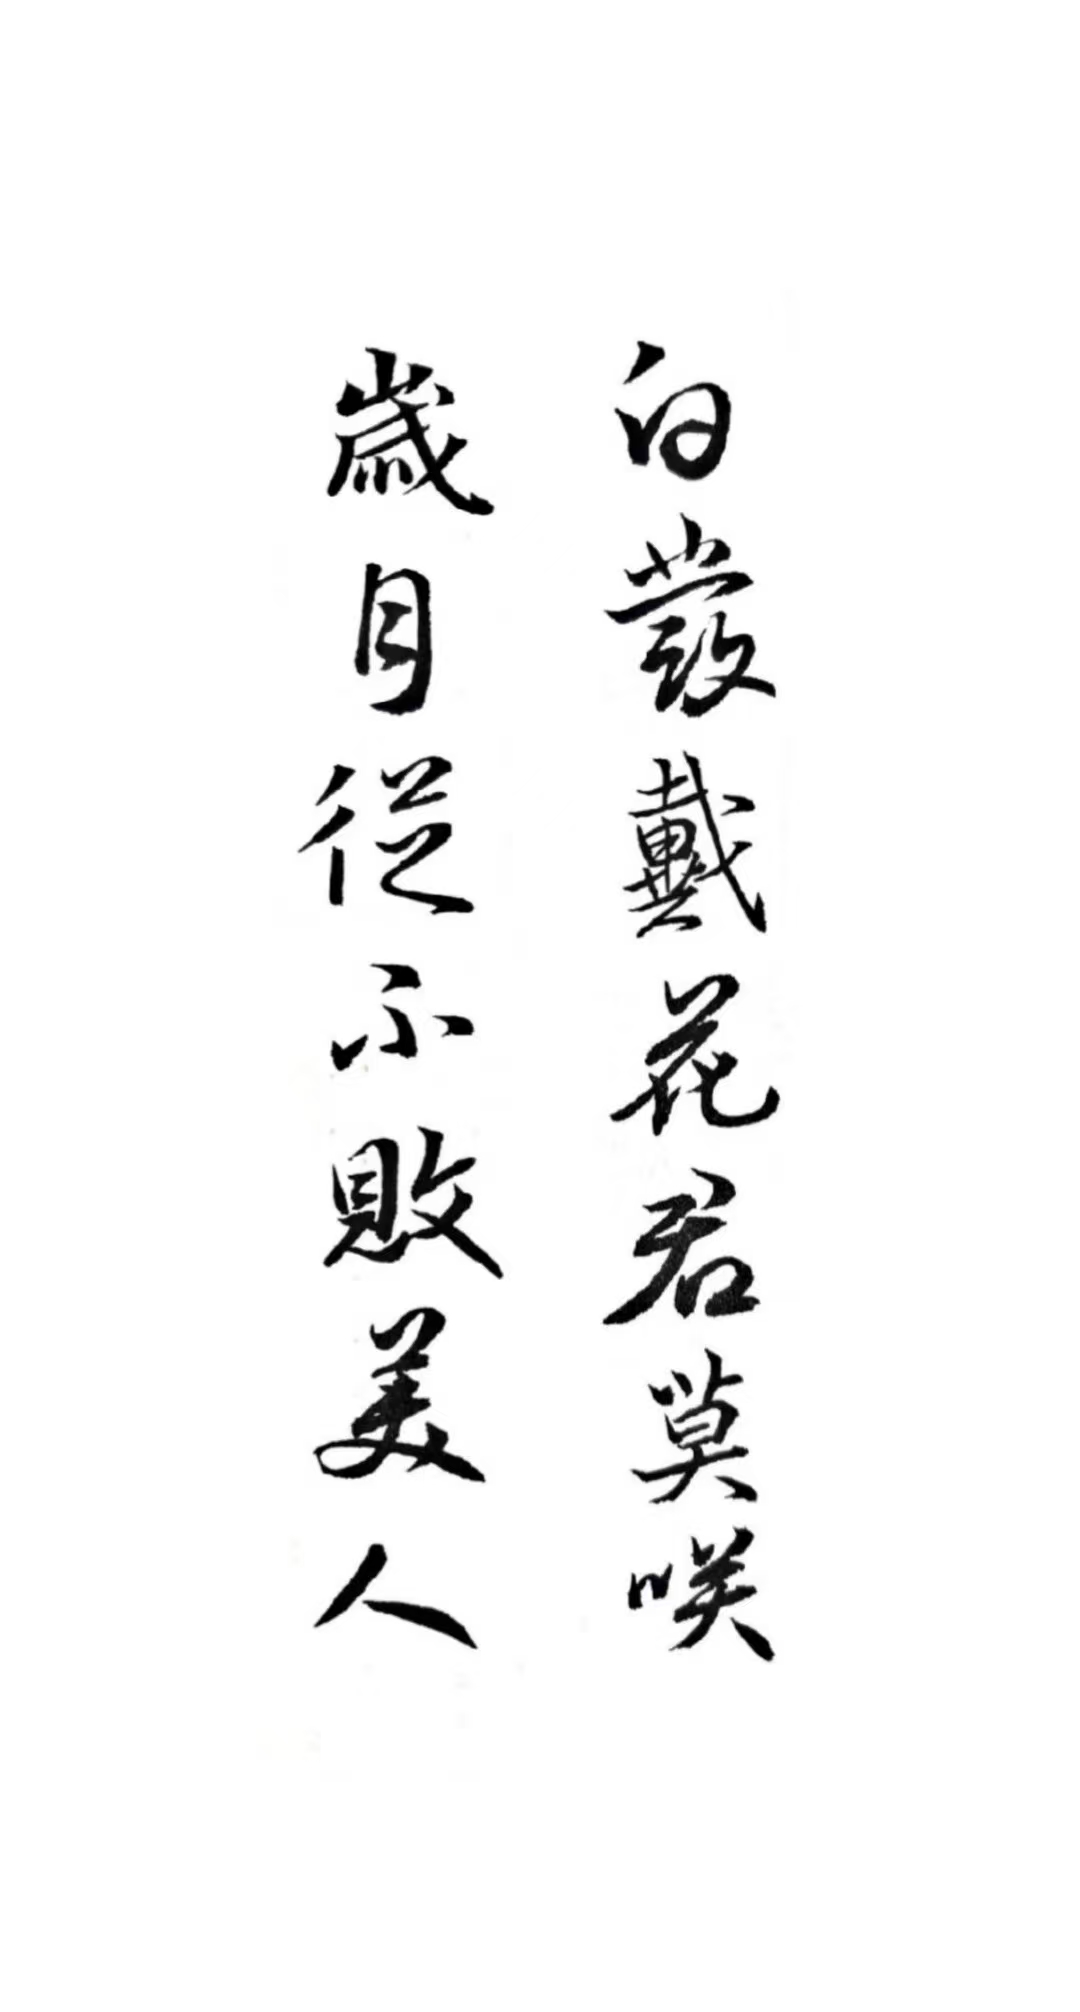 白發戴花君莫咲
歲月從不敗美人